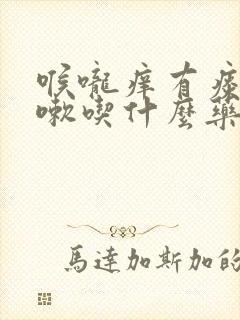 喉嚨痒有痰
嗽喫什麼藥
馬達加斯加的